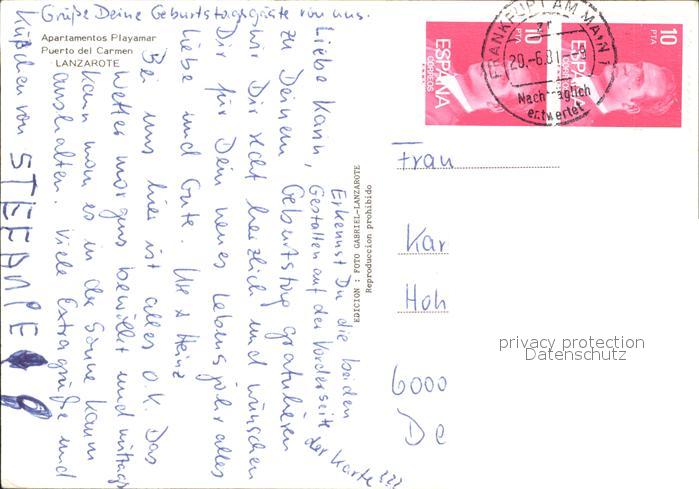 Grüße Deine Geburtstagsgäste von uns.
Apartamentos Playamar
Puerto del Carmen
LANZAROTE
Liebe Karin,
zu Deinem Geburtstag gratulieren
wir Dir recht herzlich und wünschen
Dir für Dein neues Lebensjahr alles
Liebe und Gute. Ute & Heinz
Bei uns hier ist alles o.K. Das
Wetter morgens bewölkt und mittags
kann man es in der Sonne kaum
aushalten. Viele Extragrüße und
Küßchen von STEFANIE
Erkennst Du die beiden
Gestalten auf der Vorderseite
der Karte???
EDICION : FOTO GABRIEL-LANZAROTE
Reproduccion prohibido
ESPAÑA
CORREOS
10
PTA
ESPAÑA
CORREOS
10
PTA
FRANKFURT AM MAIN 1
20.-6.81
Nachträglich
entwertet
Frau
Kar
Hoh
6000
De
privacy protection
Datenschutz